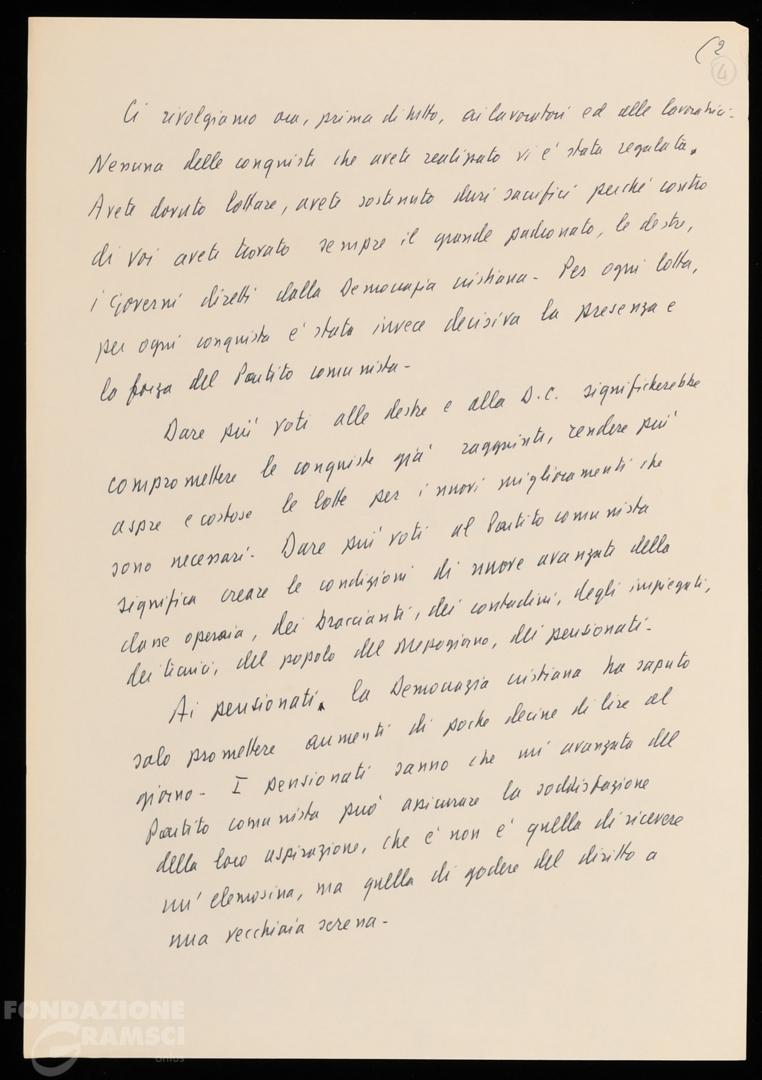 (2
4
Ci rivolgiamo ora, prima di tutto, ai lavoratori ed alle lavoratrici.
Nessuna delle conquiste che avete realizzato vi è stata regalata.
Avete dovuto lottare, avete sostenuto duri sacrifici perché contro
di voi avete trovato sempre il grande padronato, le destre,
i Governi diretti dalla Democrazia cristiana - Per ogni lotta,
per ogni conquista è stata invece decisiva la presenza e
la forza del Partito comunista -
Dare più voti alle destre e alla D.C. significherebbe
compromettere le conquiste già raggiunte, rendere più
aspre e costose le lotte per i nuovi miglioramenti che
sono necessari - Dare più voti al Partito comunista
significa creare le condizioni di nuove avanzate della
classe operaia, dei braccianti, dei contadini, degli impiegati,
dei tecnici, del popolo del Mezzogiorno, dei pensionati -
Ai pensionati, la Democrazia cristiana ha saputo
solo promettere aumenti di poche decine di lire al
giorno - I pensionati sanno che un'avanzata del
Partito comunista può assicurare la soddisfazione
della loro aspirazione, che è non è quella di ricevere
un'elemosina, ma quella di godere del diritto a
una vecchiaia serena -
FONDAZIONE
GRAMSCI
onlus